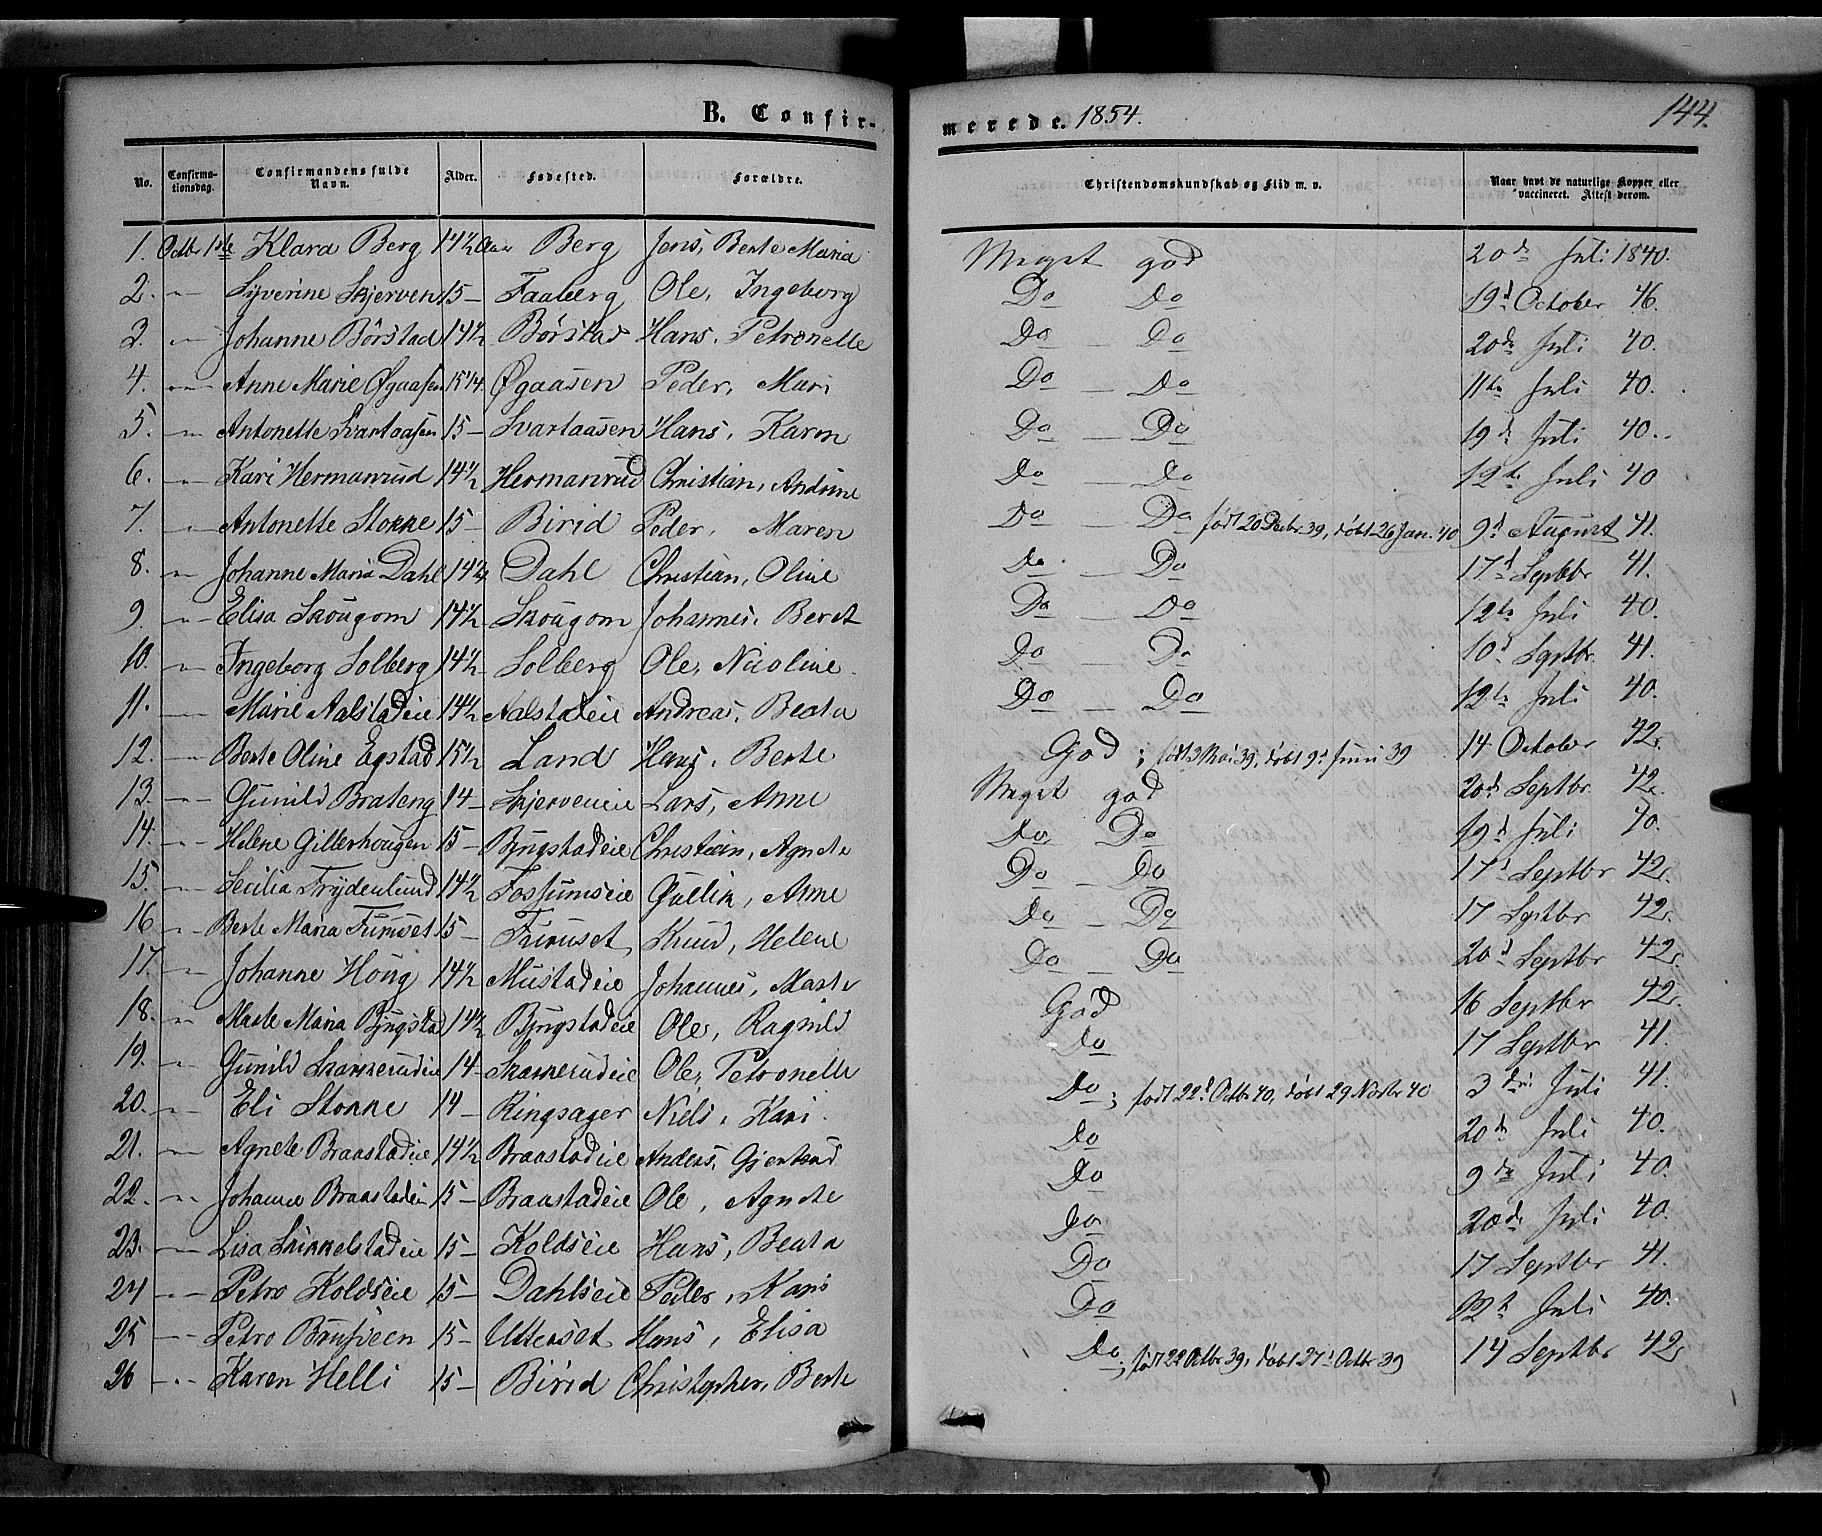 B. Confir- merede. 1854. 144.
No. Confirma-tionsdag. Confirmandens fulde Navn. Alder. Fødested. Forældre. Christendomskundskab og Flid m. v. Naar havt de naturlige Kopper eller vaccineret. Attest derom.
1. Octbr 1ste Klara Berg 14½ Aar Berg Jens, Berte Maria Meget god 20de Juli 1840.
2. -"- Syverine Skjerven 15- Faaberg Ole, Ingeborg Do Do 19d October 46.
3. -"- Johanne Børstad 14½ Børstad Hans, Petronelle Do Do 20de Juli 40.
4. -"- Anne Marie Øgaasen 15¼ Øgaasen Peder, Mari Do - Do 11te Juli 40.
5. -"- Antonette Svartaasen 15- Svartaasen Hans, Karen Do - Do 19de Juli 40.
6. -"- Kari Hermanrud 14½ Hermanrud Christian, Andrine Do Do 12te Juli 40
7. -"- Antonette Stokke 15- Birid Peder, Maren Do - Do født 20 Decbr. 39, døbt 26 Jan. 40 9d August 41.
8. -"- Johanne Maria Dahl 14½ Dahl Christian, Oline Do - Do 17d Septbr 41.
9. -"- Elisa Skougom 14½ Skougom Johannes, Beret Do - Do 12te Juli 40.
10. -"- Ingeborg Solberg 14½ Solberg Ole, Nicoline Do - Do 10d Septbr. 41.
11. — Marie Aalstadeie 14½ Aalstadeie Andreas, Beata Do - Do 12te Juli 40.
12. -"- Berte Oline Egstad 15½ Land Hans, Berte God; født 3 Mai 39, døbt 9d Juni 39 14 October 42.
13. -"- Gunild Brateng 14- Skjerveneie Lars, Anne Meget god 20d Septbr. 42.
14. -"- Helene Gillerhougen 15- Bjugstadeie Christian, Agnete Do Do 19d Juli 40.
15. -"- Cecilia Frydenlund 14½ Fossumseie Gullik, Anne Do - Do 17d Septbr 42.
16 -"- Berte Maria Furuset 15- Furuset Knud, Helene Do - Do 17 Septbr 42.
17. -"- Johanne Houg 14½ Mustadeie Johannes, Marte Do - Do 20d Septbr 42.
18. -"- Marte Maria Bjugstad 14½ Bjugstadeie Ole, Ragnild God 16 Septbr 42.
19. -"- Gunild Skakkerudeie 14- Skakkerudeie Ole, Petronelle Do 17 Septbr 41.
20. -"- Eli Stokke 14- Ringsager Niels, Kari Do; født 22d Octbr 40, døbt 29 Novbr 40 3die Juli 41.
21. -"- Agnete Braastadeie 14½ Braastadeie Anders, Gjertrud Do 20de Juli 40.
22. -"- Johanne Braastadeie 15- Braastadeie Ole, Agnete Do 9de Juli 40.
23. -"- Lisa Skikkelstadeie 15- Koldseie Hans, Beata Do 20de Juli 40.
24 -"- Petro Koldseie 15- Dahlseie Peder, Kari Do 17 Septbr 41.
25 -"- Petro 15- Utterset Hans, Elisa Do 12te Juli 40.
26 -"- Karen Helli 15- Birid Christopher, Berte Do; født 22 Octbr 39, døbt 27d Octbr 39 14 Septbr 42